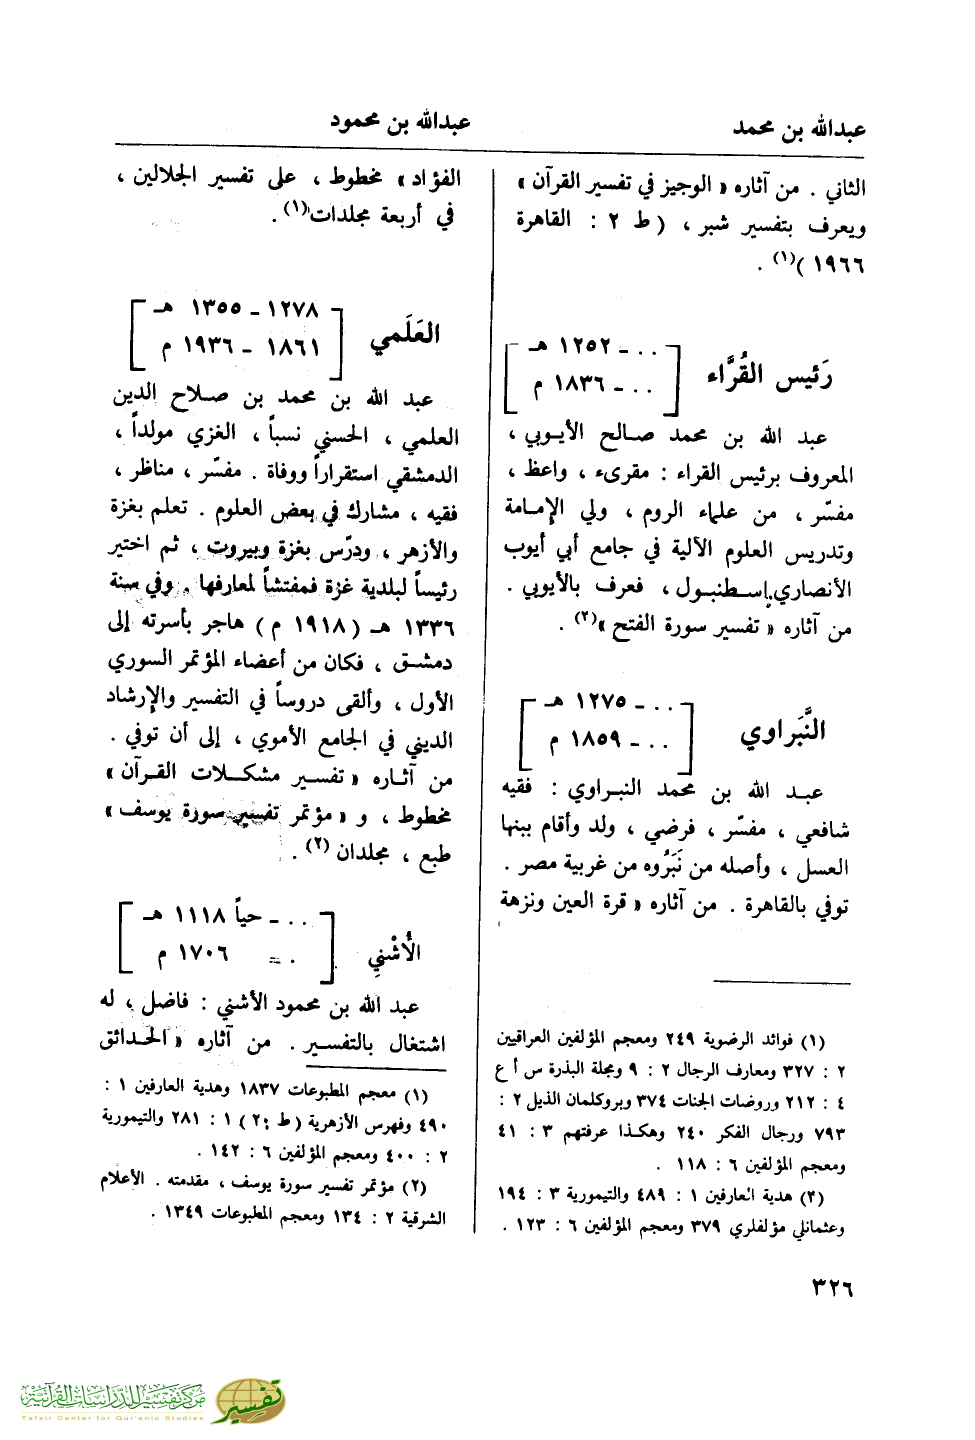 عبدالله بن محمد
عبدالله بن محمود
الثاني . من آثاره « الوجيز في تفسير القرآن »
ويعرف بتفسير شبر ، ( ط ٢ : القاهرة
١٩٦٦ )(١) .
رَئيس القُرَّاء
.. ـ ١٢٥٢ هـ
.. ـ ١٨٣٦ م
عبد الله بن محمد صالح الأيوبي ،
المعروف برئيس القراء : مقرىء ، واعظ ،
مفسّر ، من علماء الروم ، ولي الإمامة
وتدريس العلوم الآلية في جامع أبي أيوب
الأنصاري بإسطنبول ، فعرف بالأيوبي .
من آثاره « تفسير سورة الفتح »(٢) .
النَّبَراوي
.. ـ ١٢٧٥ هـ
.. ـ ١٨٥٩ م
عبد الله بن محمد النبراوي : فقيه
شافعي ، مفسّر ، فرضي ، ولد وأقام ببنها
العسل ، وأصله من نَبَرُوه من غربية مصر .
توفي بالقاهرة . من آثاره « قرة العين ونزهة
(١) فوائد الرضوية ٢٤٩ ومعجم المؤلفين العراقيين
٢ : ٣٢٧ ومعارف الرجال ٢ : ٩ ومجلة البذرة س أ ع
٤ : ٢١٢ وروضات الجنات ٣٧٤ وبروكلمان الذيل ٢ :
٧٩٣ ورجال الفكر ٢٤٠ وهكذا عرفتهم ٣ : ٤١
ومعجم المؤلفين ٦ : ١١٨ .
(٢) هدية العارفين ١ : ٤٨٩ والتيمورية ٣ : ١٩٤
وعثمانلي مؤلفلري ٣٧٩ ومعجم المؤلفين ٦ : ١٢٣ .
الفؤاد » مخطوط ، على تفسير الجلالين ،
في أربعة مجلدات(١) .
العَلَمي
١٢٧٨ ـ ١٣٥٥ هـ
١٨٦١ ـ ١٩٣٦ م
عبد الله بن محمد بن صلاح الدين
العلمي ، الحسني نسباً ، الغزي مولداً ،
الدمشقي استقراراً ووفاة . مفسّر ، مناظر ،
فقيه ، مشارك في بعض العلوم . تعلم بغزة
والأزهر ، ودرّس بغزة وبيروت ، ثم اختير
رئيساً لبلدية غزة فمفتشاً لمعارفها . وفي سنة
١٣٣٦ هـ ( ١٩١٨ م ) هاجر بأسرته إلى
دمشق ، فكان من أعضاء المؤتمر السوري
الأول ، وألقى دروساً في التفسير والإرشاد
الديني في الجامع الأموي ، إلى أن توفي .
من آثاره « تفسير مشكلات القرآن »
مخطوط ، و « مؤتمر تفسير سورة يوسف »
طبع ، مجلدان (٢) .
الأُشْنِي
.. ـ حياً ١١١٨ هـ
. = ١٧٠٦ م
عبد الله بن محمود الأشني : فاضل ، له
اشتغال بالتفسير . من آثاره « الحدائق
(١) معجم المطبوعات ١٨٣٧ وهدية العارفين ١ :
٤٩٠ وفهرس الأزهرية ( ط ٢ ) ١ : ٢٨١ والتيمورية
٢ : ٤٠٠ ومعجم المؤلفين ٦ : ١٤٢ .
(٢) مؤتمر تفسير سورة يوسف ، مقدمته . الأعلام
الشرقية ٢ : ١٣٤ ومعجم المطبوعات ١٣٤٩ .
٣٢٦
مركز تفسير للدراسات القرآنية
Tafsir Center for Qur'anic Studies
تفسير